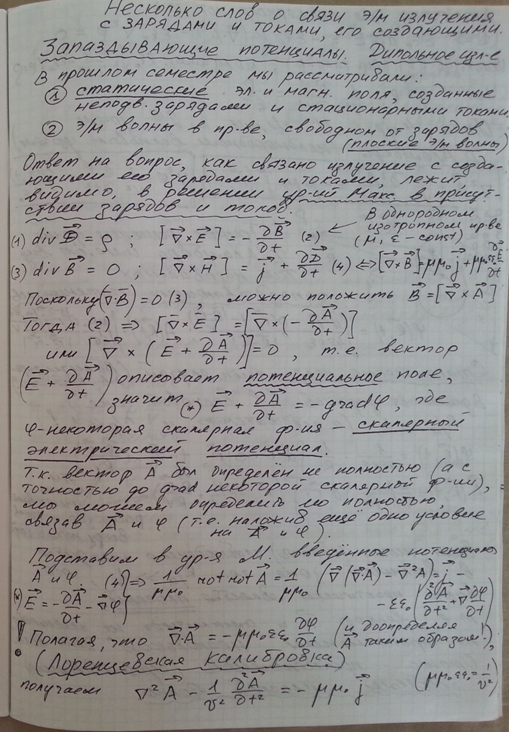 Несколько слов о связи э/м излучения
с зарядами и токами, его создающими.
Запаздывающие потенциалы. Дипольное изл-е
В прошлом семестре мы рассматривали:
① статические эл. и магн. поля, созданные
неподв. зарядами и стационарными токами
② э/м волны в пр-ве, свободном от зарядов
(плоские э/м волны)
Ответ на вопрос, как связано излучение с созда-
ющими его зарядами и токами, лежит,
видимо, в решении ур-ий Макс в присут-
ствии зарядов и токов.
В однородном
изотропном пр-ве
(μ, ε - const)
(1) div D⃗ = ρ ; [∇⃗×E⃗] = -∂B⃗/∂t (2)
(3) div B⃗ = 0 ; [∇⃗×H⃗] = j⃗ + ∂D⃗/∂t (4) ⇔ [∇⃗×B⃗] = μμ₀j⃗ +
Поскольку (∇⃗·B⃗) = 0 (3), можно положить B⃗ = [∇⃗×A⃗]
Тогда (2) ⇒ [∇⃗×E⃗] = [∇⃗×(-∂A⃗/∂t)]
или [∇⃗×(E⃗ + ∂A⃗/∂t)] = 0, т.е. вектор
(E⃗ + ∂A⃗/∂t) описовает потенциальное поле,
значит (*) E⃗ + ∂A⃗/∂t = -grad φ, где
φ-некоторая скалярная ф-ия - скалярный
электрический потенциал.
Т.к. вектор A⃗ был определён не полностью (а с
точностью до grad некоторой скалярной ф-ии),
мы можем определить его полностью,
связав A⃗ и φ (т.е. наложив ещё одно условие
на A⃗ и φ).
Подставим в ур-я М. введённые потенциалы
A⃗ и φ. (4) ⇒ 1/μμ₀ rot rot A⃗ = 1/μμ₀ (∇⃗(∇⃗·A⃗) - ∇²A⃗) = j⃗
(*) E⃗ = -∂A⃗/∂t - ∇⃗φ - εε₀(∂²A⃗/∂t² + ∇⃗∂φ/∂t)
! Полагая, что ∇⃗·A⃗ = -μμ₀εε₀ ∂φ/∂t (и доопределяя
A⃗ таким образом),
(Лоренцевская калибровка)
получаем ∇²A⃗ - 1/v² ∂²A⃗/∂t² = -μμ₀ j⃗ (μμ₀εε₀ = 1/v²)